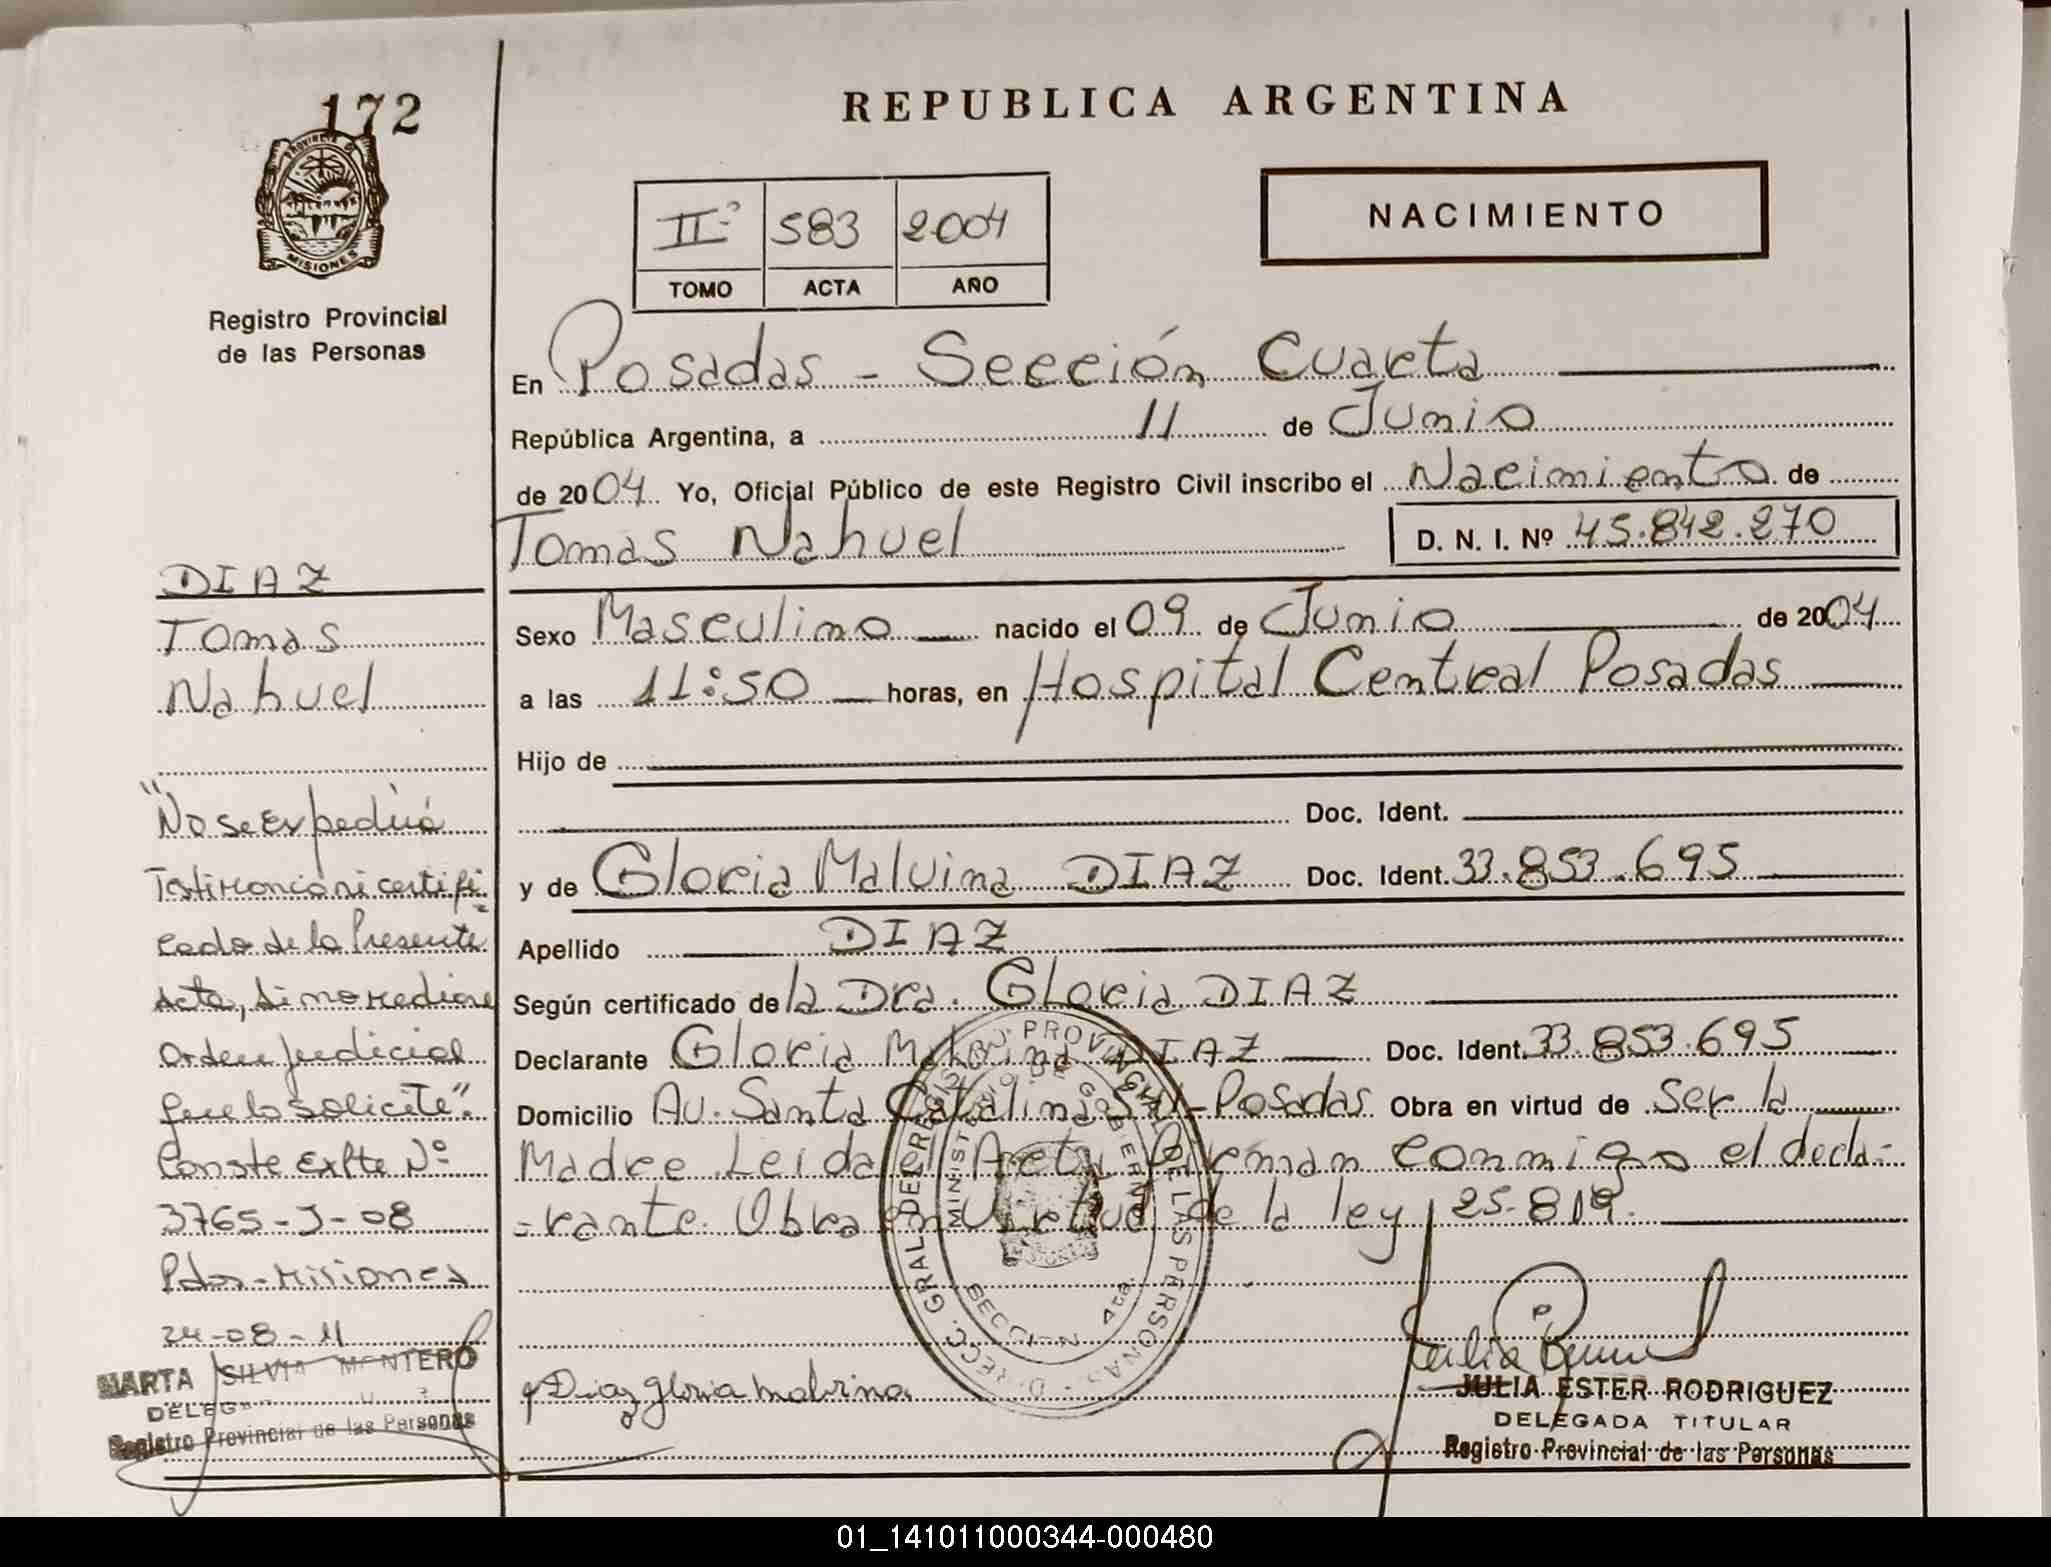 172
PROVINCIA D
MISIONES
Registro Provincial
de las Personas
REPUBLICA ARGENTINA
IIº 583 2004
TOMO ACTA AÑO
NACIMIENTO
En Posadas - Sección Cuarta
República Argentina, a 11 de Junio
de 2004 Yo, Oficial Público de este Registro Civil inscribo el Nacimiento de
Tomas Nahuel D. N. I. Nº 45.842.270
Sexo Masculino nacido el 09 de Junio de 2004
a las 11:50 horas, en Hospital Central Posadas
Hijo de
Doc. Ident.
y de Gloria Malvina DIAZ Doc. Ident. 33.853.695
Apellido DIAZ
Según certificado de la Dra. Gloria DIAZ
Declarante Gloria Malvina DIAZ Doc. Ident. 33.853.695
Domicilio Av. Santa Catalina S/N - Posadas Obra en virtud de Ser la
Madre Leida el Acta firman conmigo el decla-
-rante. Obra en Virtud de la ley 25.819.
DIAZ
Tomas
Nahuel
"No se expedirá
Testimonio ni certifi-
cado de la Presente
Acta, si no mediare
Orden judicial
que lo solicite".
Conste Expte Nº
3765-J-08
Pdas-Misiones
24-08-11
MARTA SILVIA MONTERO
DELEG
Registro Provincial de las Personas
DIRECC. GRAL. DEL REGISTRO PROVINCIAL DE LAS PERSONAS
MINISTERIO DE GOBIERNO
SECCION 4ta.
Diaz gloria malvina
JULIA ESTER RODRIGUEZ
DELEGADA TITULAR
Registro Provincial de las Personas
01_141011000344-000480